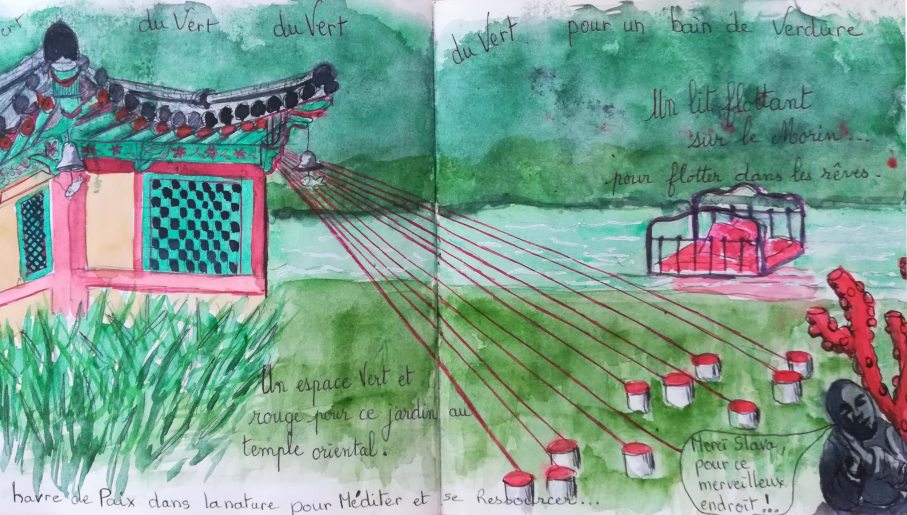 du Vert
du Vert
du Vert
pour un bain de Verdure
Un lit flottant
sur le Morin...
pour flotter dans les rêves.
Un espace Vert et
rouge pour ce jardin au
temple oriental.
Merci Slava,
pour ce
merveilleux
endroit !...
havre de Paix dans la nature pour Méditer et se Ressourcer...